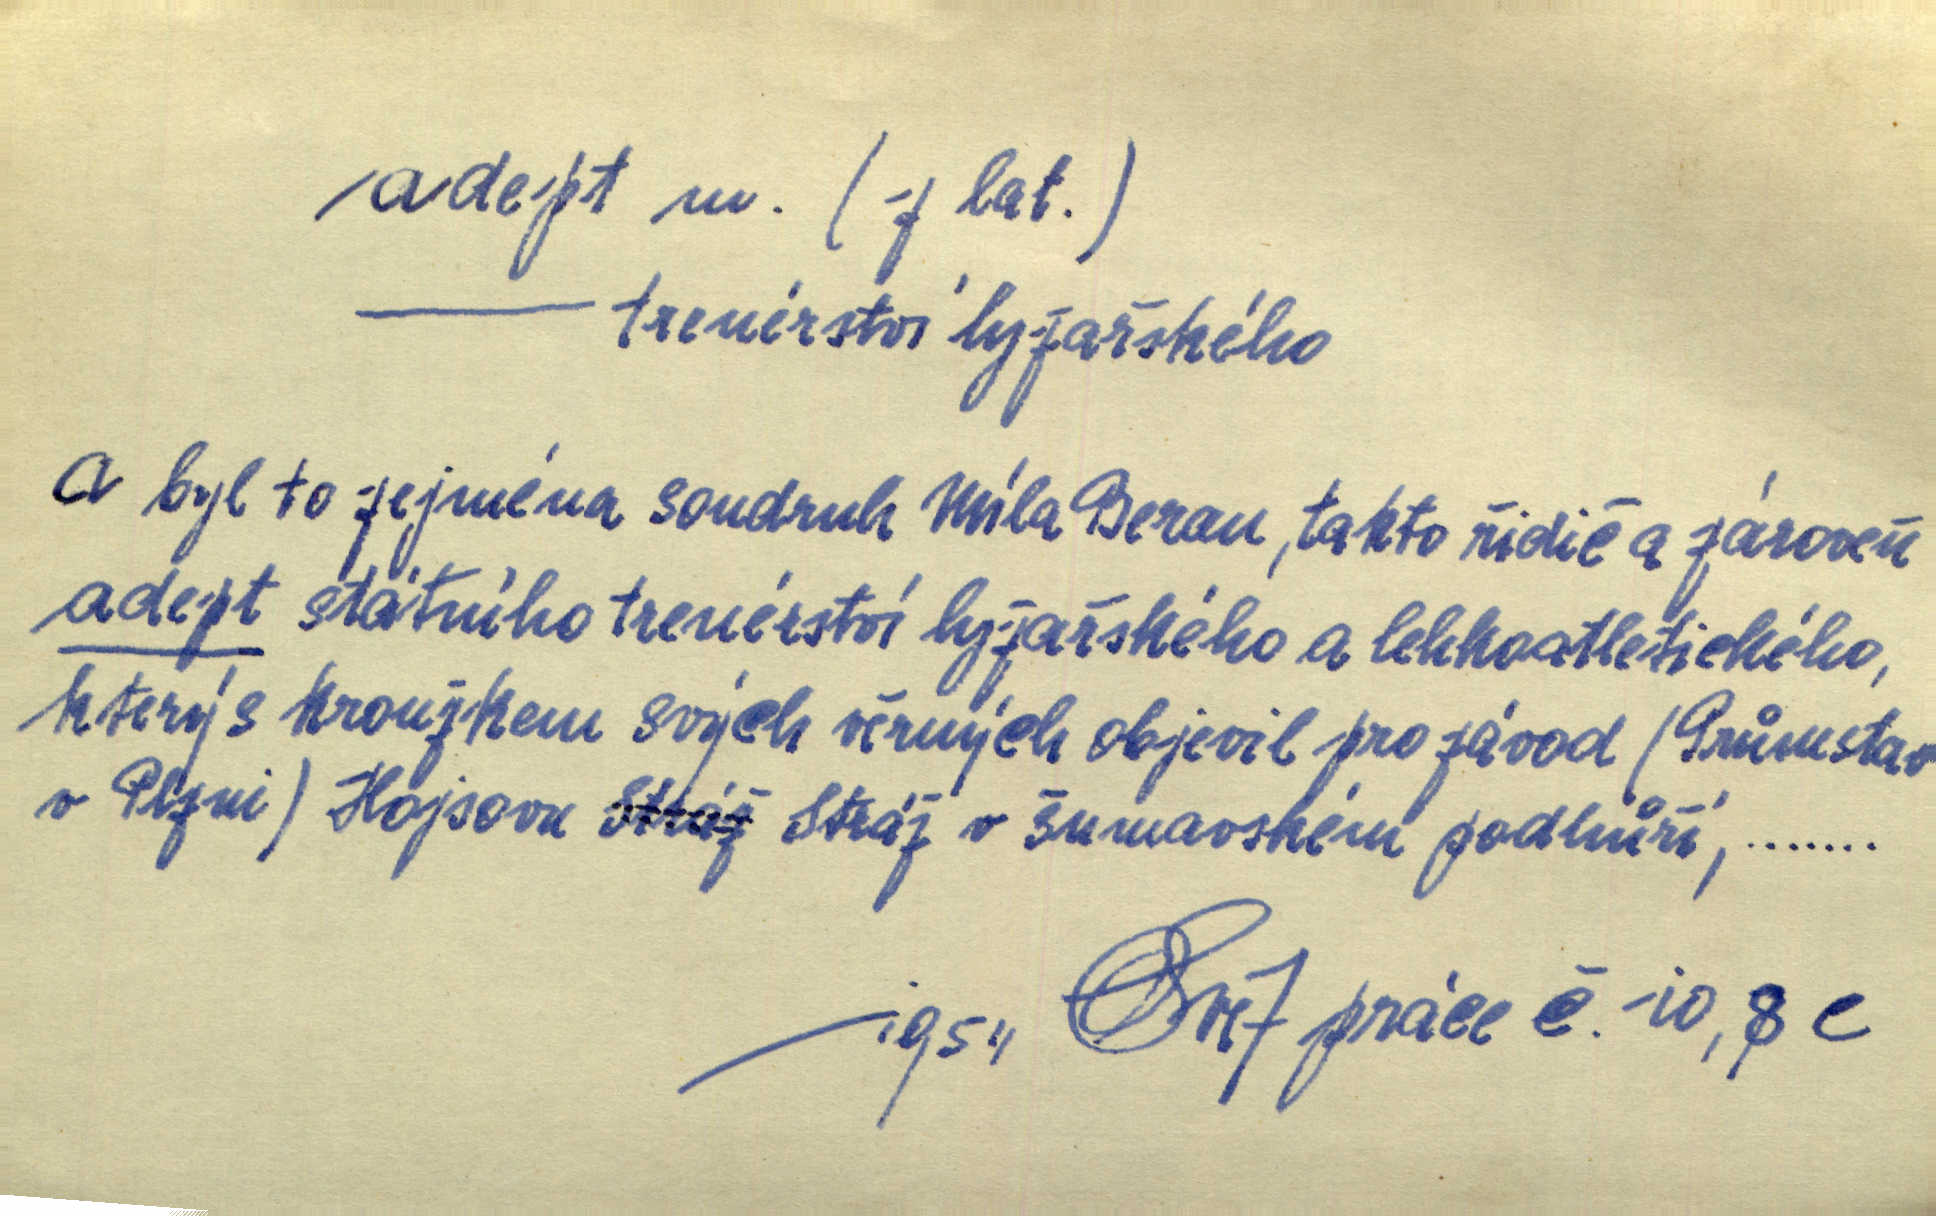 adept m. (z lat.)
—— trenérství lyžařského
A byl to zejména soudruh Míla Beran, takto řidič a zároveň
adept státního trenérství lyžařského a lehkoatletického,
který s kroužkem svých věrných objevil pro závod (Průmstav
v Plzni) Hojsovu Stráž Stráž v šumavském podhůří, .......
1954 Svět práce č. 10, 8 c